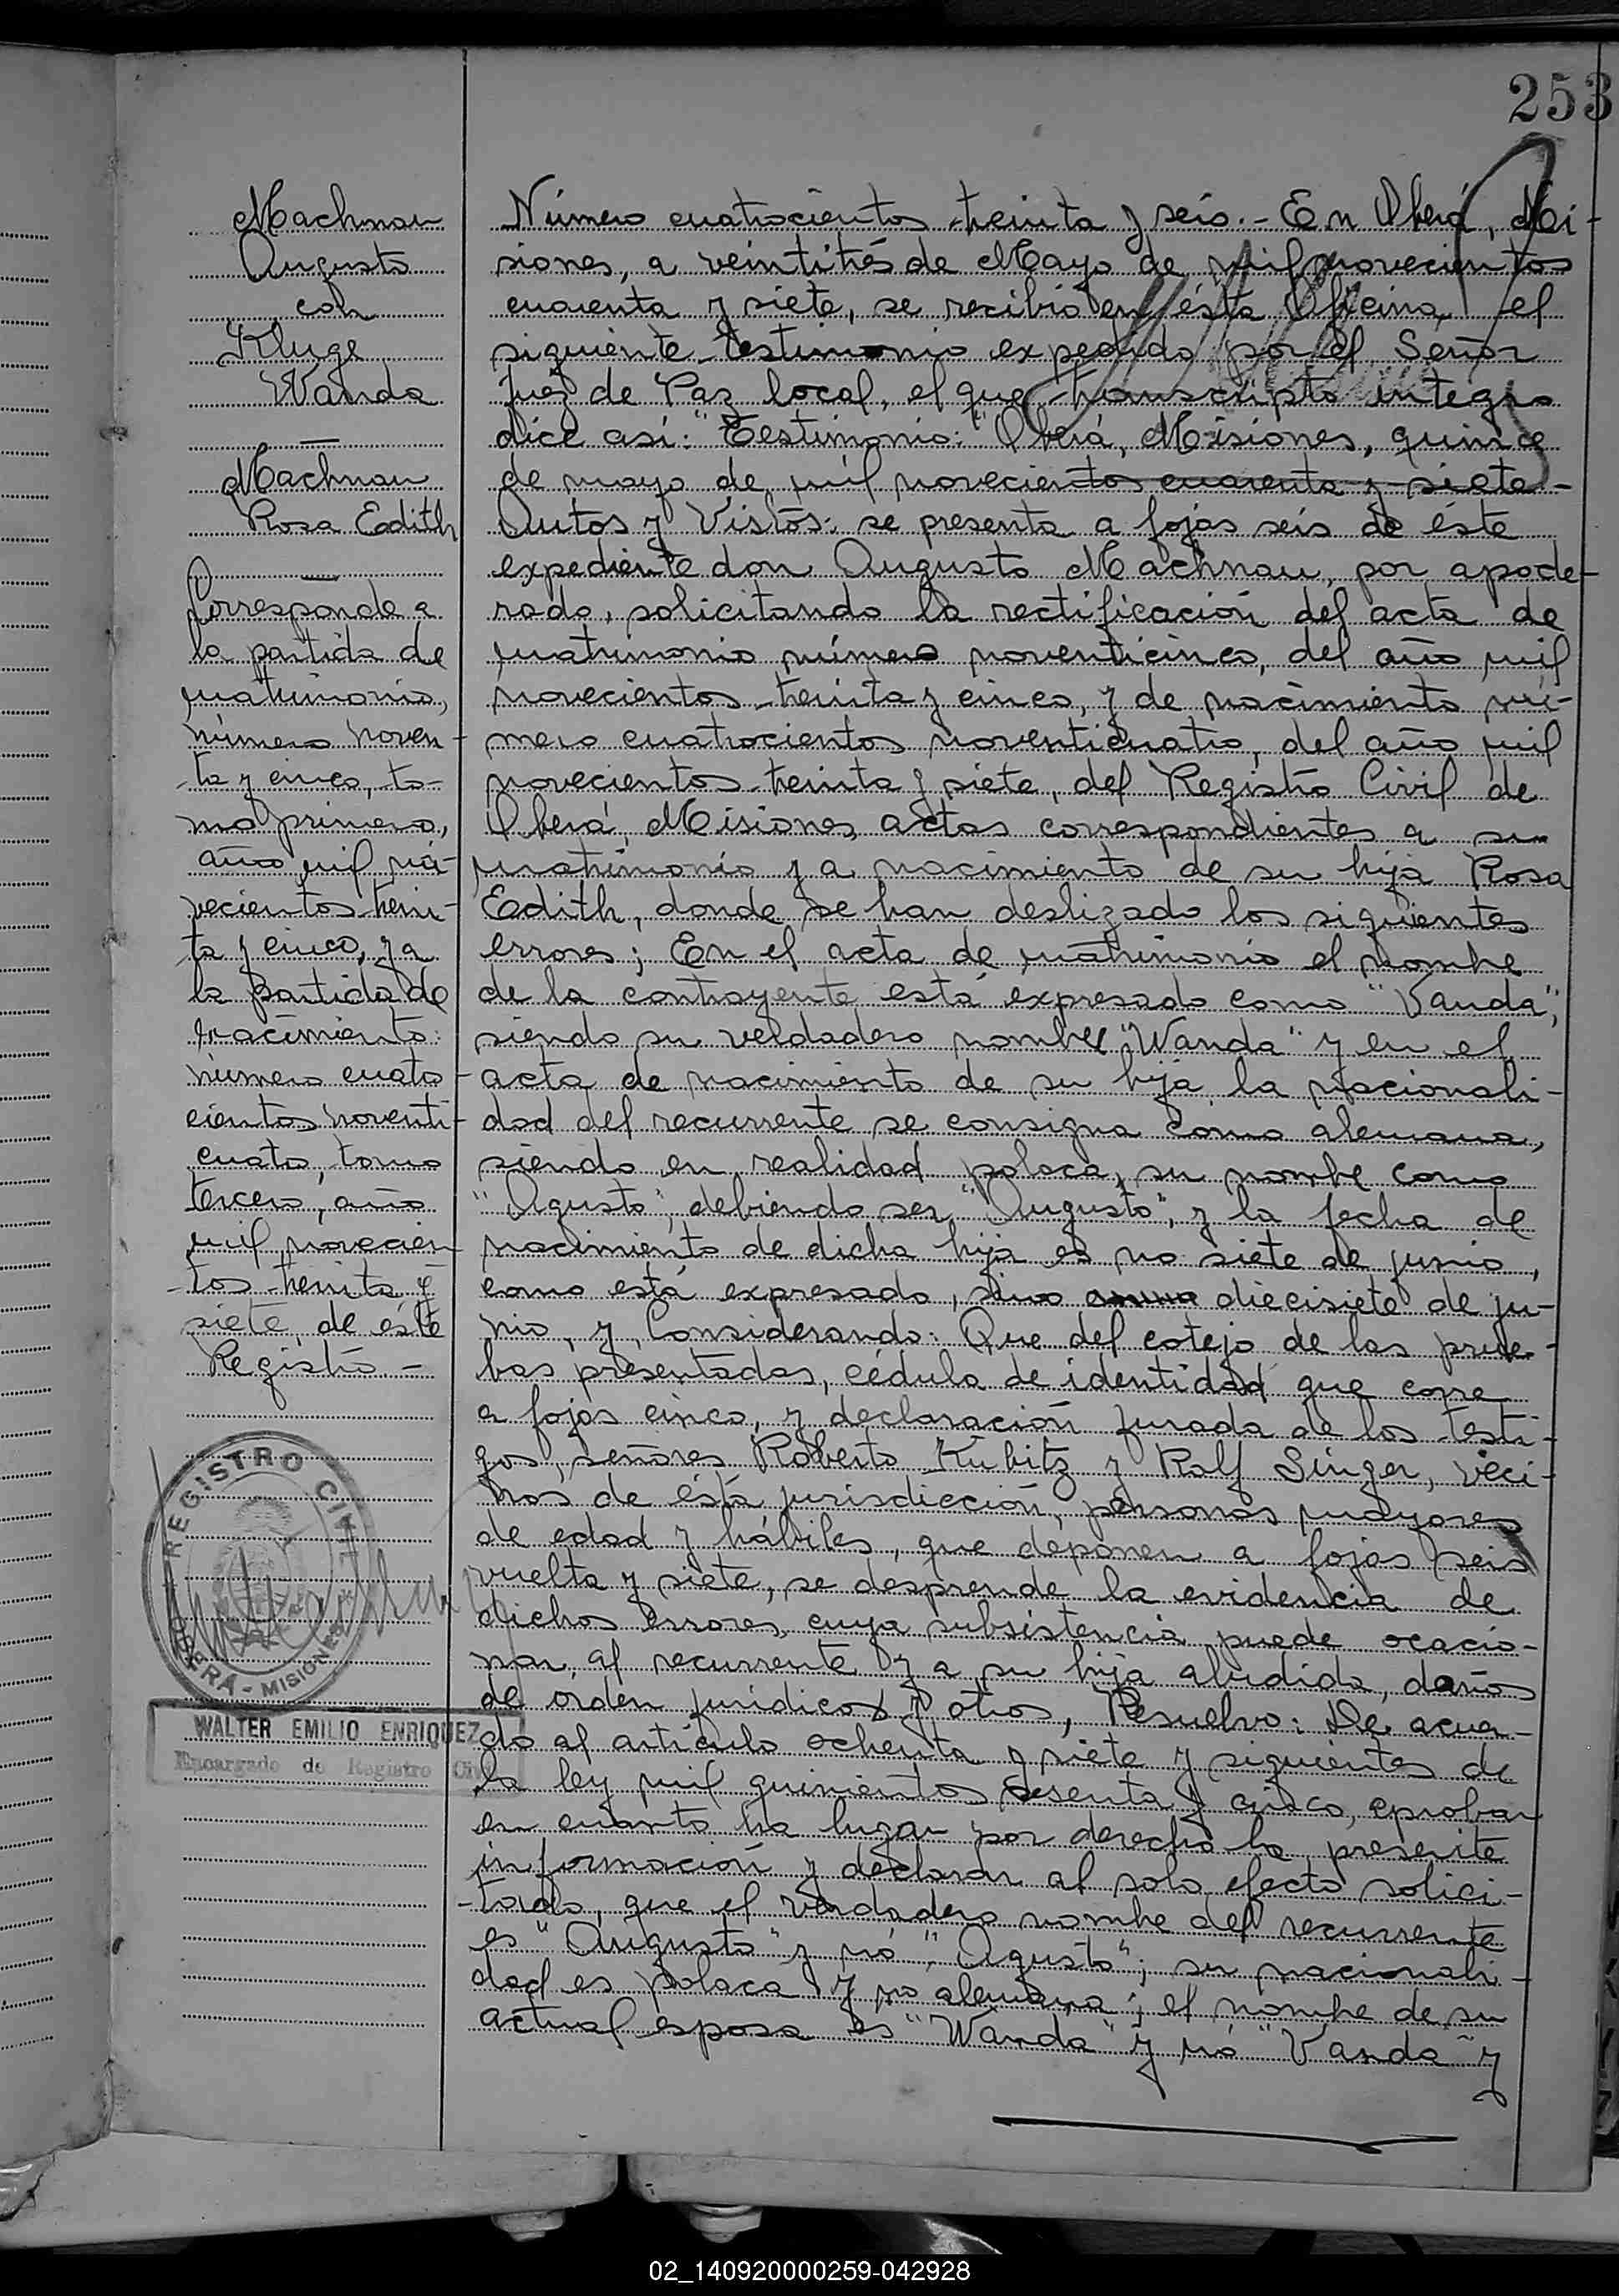 253
Machnau
Augusto
con
Kluge
Wanda
—
Machnau
Rosa Edith
—
Corresponde a
la partida de
matrimonio,
número noven-
ta y cinco, to-
mo primero,
año mil no-
vecientos trein-
ta y cinco, y a
la partida de
nacimiento:
número cuatro-
cientos noventi-
cuatro, tomo
tercero, año
mil novecien-
tos treinta y
siete, de éste
Registro.-
REGISTRO CIVIL
OBERÁ - MISIONES
WALTER EMILIO ENRIQUEZ
Encargado de Registro Civil
Número cuatrocientos treinta y seis.- En Oberá, Mi-
siones, a veintitrés de Mayo de mil novecientos
cuarenta y siete, se recibió en ésta Oficina, el
siguiente testimonio expedido por el Señor
Juez de Paz local, el que transcripto íntegro
dice así: "Testimonio: "Oberá, Misiones, quince
de mayo de mil novecientos cuarenta y siete-
Autos y Vistos: se presenta a fojas seis de éste
expediente don Augusto Machnau, por apode-
rado, solicitando la rectificación del acta de
matrimonio número noventicinco, del año mil
novecientos treinta y cinco, y de nacimiento nú-
mero cuatrocientos noventicuatro, del año mil
novecientos treinta y siete, del Registro Civil de
Oberá, Misiones, actas correspondientes a su
matrimonio y a nacimiento de su hija Rosa
Edith, donde se han deslizado los siguientes
errores; En el acta de matrimonio el nombre
de la contrayente está expresado como "Vanda",
siendo su verdadero nombre "Wanda" y en el
acta de nacimiento de su hija, la nacionali-
dad del recurrente se consigna como alemana,
siendo en realidad polaca, su nombre como
"Agusto", debiendo ser "Augusto", y la fecha de
nacimiento de dicha hija es no siete de junio,
como está expresado, sino diecisiete de ju-
nio, y, Considerando: Que del cotejo de las prue-
bas presentadas, cédula de identidad que corre
a fojas cinco, y declaración jurada de los testi-
gos, señores Roberto Kubitz y Rolf Singer, veci-
nos de ésta jurisdicción, personas mayores
de edad y hábiles, que deponen a fojas seis
vuelta y siete, se desprende la evidencia de
dichos errores, cuya subsistencia puede ocacio-
nar, al recurrente y a su hija aludida, daños
de orden jurídicos y otros, Resuelvo: De acuer-
do al artículo ochenta y siete y siguientes de
la ley mil quinientos sesenta y cinco, aprobar
en cuanto ha lugar por derecho la presente
información y declarar al solo efecto solici-
-tado, que el verdadero nombre del recurrente
es "Augusto" y nó "Agusto"; su nacionali-
dad es polaca y no alemana; el nombre de su
actual esposa es "Wanda" y nó "Vanda" y
02_140920000259-042928